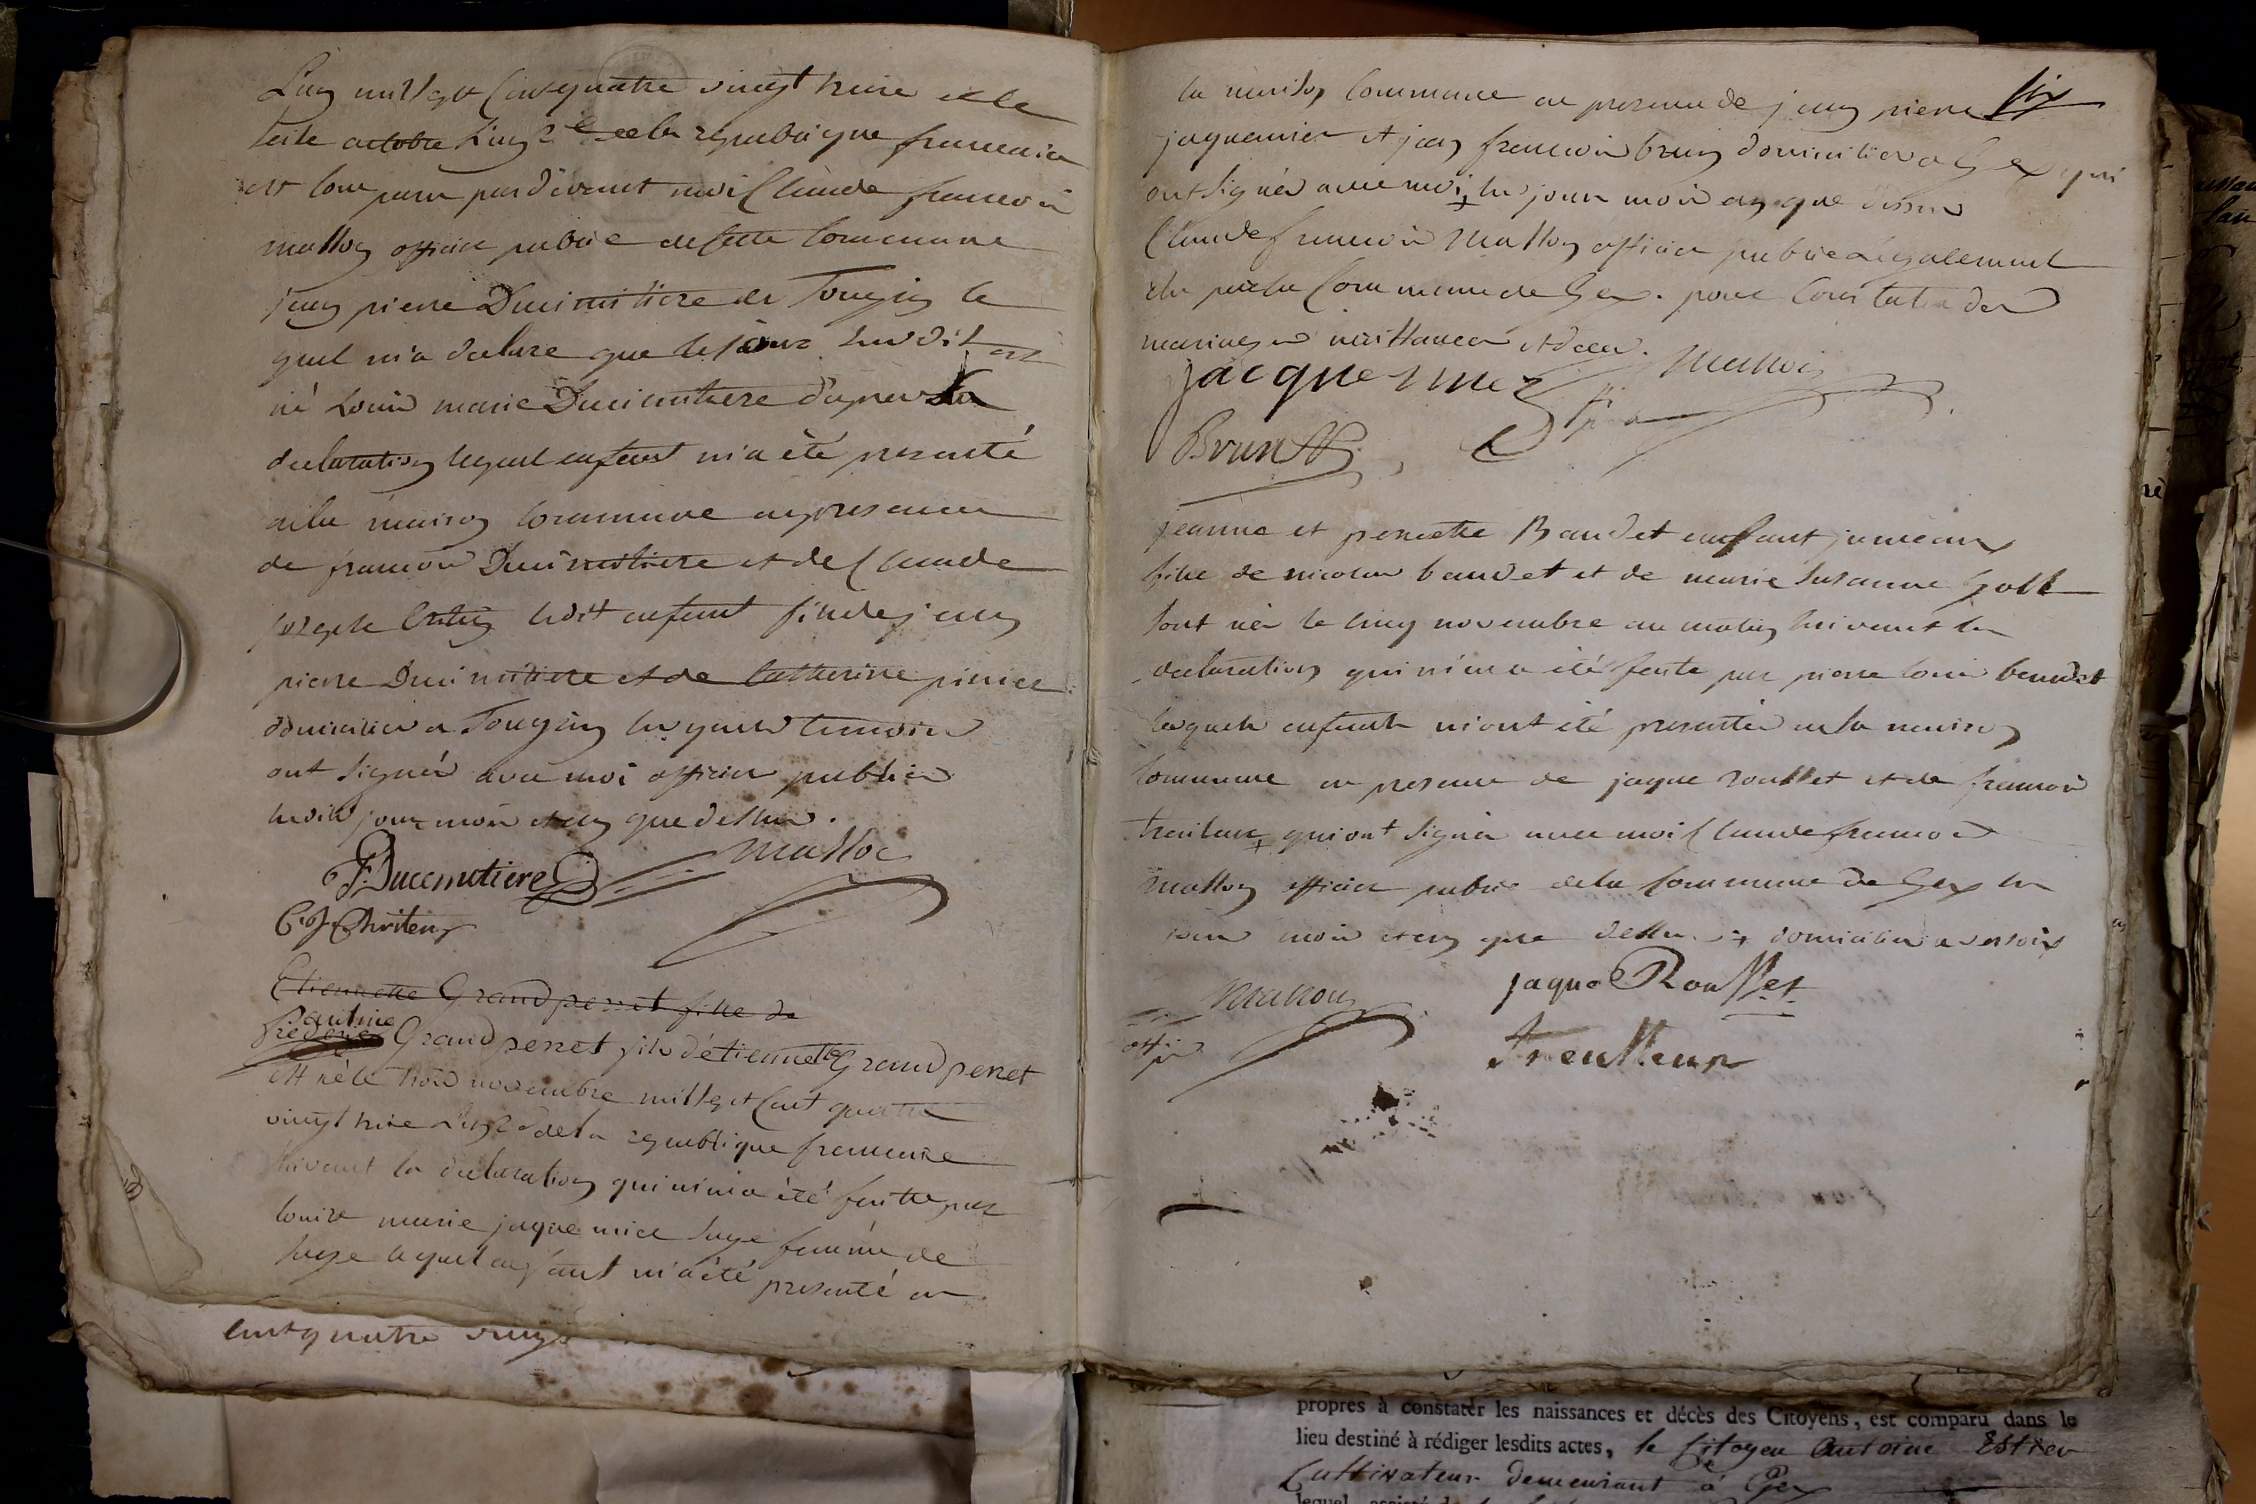 L'an mille sept Cent quatre vingt treize et le
octobre L'an 2e de la republique francaise
est comparu pardevant moi Claude francois
mallon officier public de cette Commune
jean pierre Ducimitiere de Tougin le
quel m'a declaré que le jour susdit est
né Louis marie Ducimitiere d'apres sa
declaration lequel enfant m'a été presenté
a la maison commune en presence
de francois Ducimitiere et de Claude
joseph ledit enfant fils de jean
pierre Ducimitiere et de Catherine
domicilies a Tougin lesquels temoins
ont signés avec moi officier public
lesdits jour mois et an que dessus.
mallon
F. Ducemetiere
C. J. Chriten
Etiennette Grandperret fille de
Grandperret fils d'étiennette Grandperret
est né le trois novembre mille sept Cent quatre
vingt treize L'an 2d de la republique francaise
suivant la declaration qui m'en a été faitte par
louise marie jaquemier sage femme de
lequel enfant m'a été presenté en
Cent quatre vingt
six
la maison Commune en presence de jean pierre
jaquemier et jean francois brun domicilies a Gex qui
ont signés avec moi les jour mois an que dessus
Claude francois Mallon officier public légalement
elu par la Commune de Gex. pour Constater des
mariages naissances et deces.
jacquemier
Mallon
Brun
jeanne et pernette Baudet enfant jumeaux
fille de nicolas baudet et de marie Susanne
sont nés le cinq novembre au matin suivant la
declaration qui m'en a été faite par pierre louis baudet
lesquels enfants m'ont été presentés en la maison
commune en presence de jaque rousset et de francois
treuleur qui ont signés avec moi Claude francois
mallon officier public de la Commune de Gex les
jour mois et an que dessus domicilies a versoix
Mallon
off.
jaque Rousset
propres à constater les naissances et décès des Citoyens, est comparu dans le
lieu destiné à rédiger lesdits actes, le Citoyen Antoine
Cultivateur demeurant à Gex
lequel